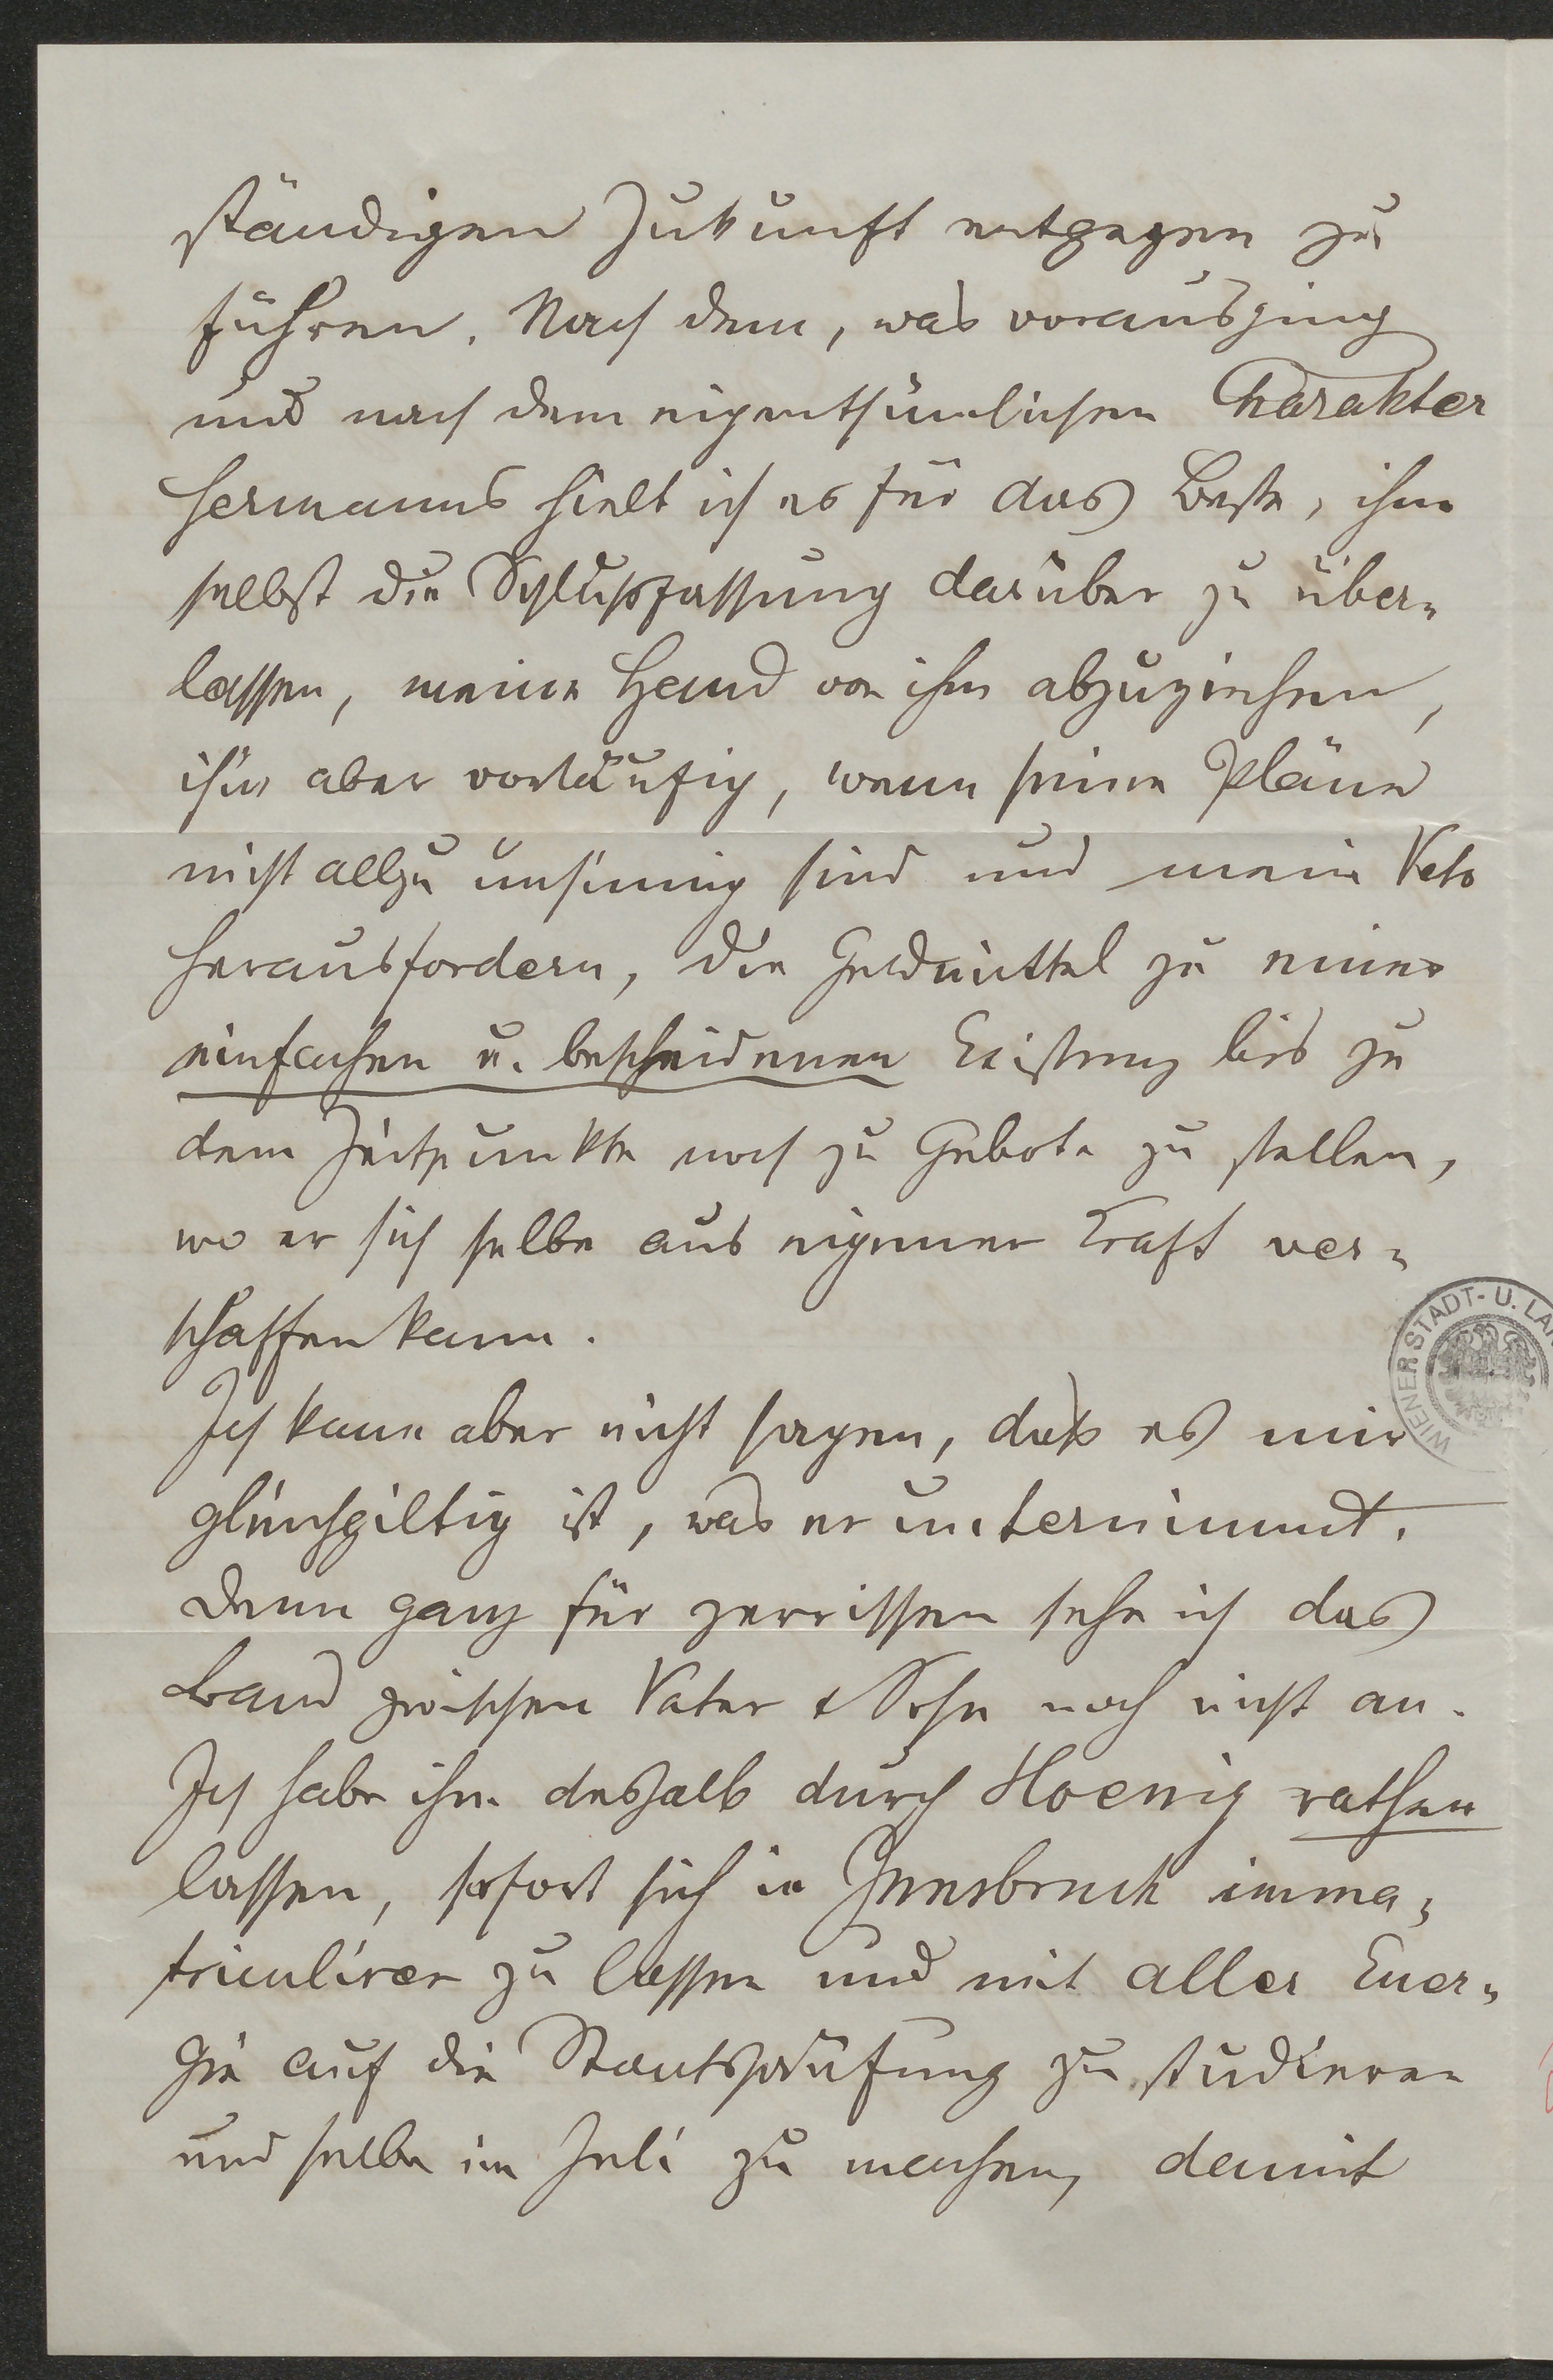 ständigen Zukunft entgegen zu
führen. Nach dem, was vorausging
und nach dem eigenthümlichen Charakter
Hermanns hielt ich es für das Beste, ihm
selbst die Schlußfassung darüber zu über-
lassen, meine Hand von ihm abzuziehen,
ihm aber vorläufig, wenn seine Pläne
nicht allzu unsinnig sind und mein Veto
herausfordern, die Geldmittel zu einer
einfachen u. bescheidenen Existenz bis zu
dem Zeitpunkte noch zu Gebote zu stellen,
wo er sich selbe aus eigener Kraft ver-
schaffen kann.
Ich kann aber nicht sagen, daß es mir
gleichgiltig ist, was er unternimmt.
Denn ganz für zerrissen sehe ich das
Band zwischen Vater & Sohn noch nicht an.
Ich habe ihm deshalb durch Hoenig rathen
lassen, sofort sich in Innsbruck imma-
triculiren zu lassen und mit aller Ener-
gie auf die Staatsprüfung zu studieren
und selbe im Juli zu machen, damit
WIENER STADT- U. LA